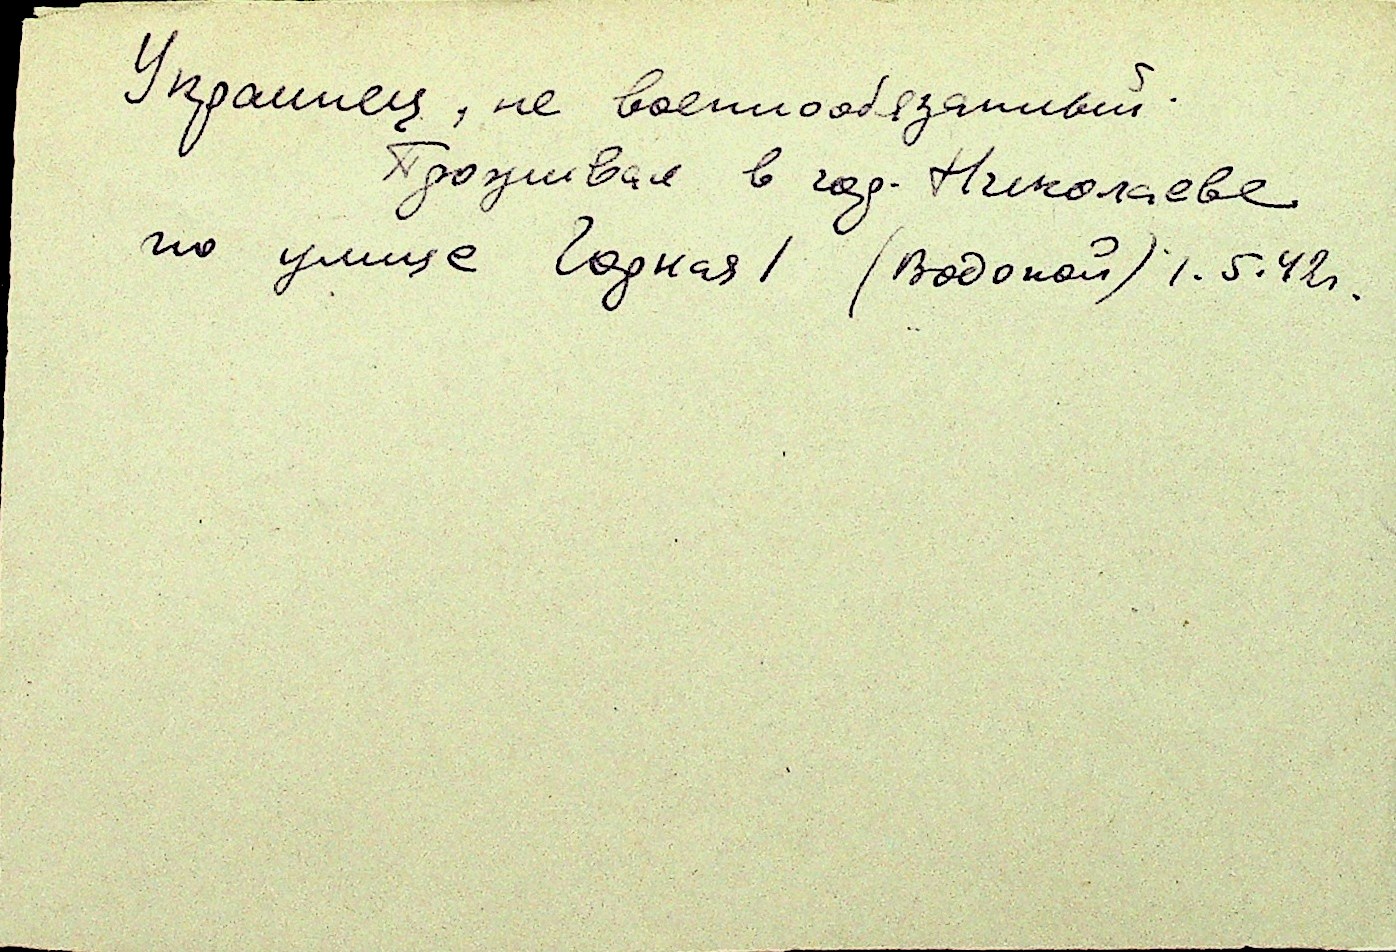 Украинец, не военнообязанный.
Проживал в гор. Николаеве
по улице Годная 1 (Водопой) 1.5.42г.